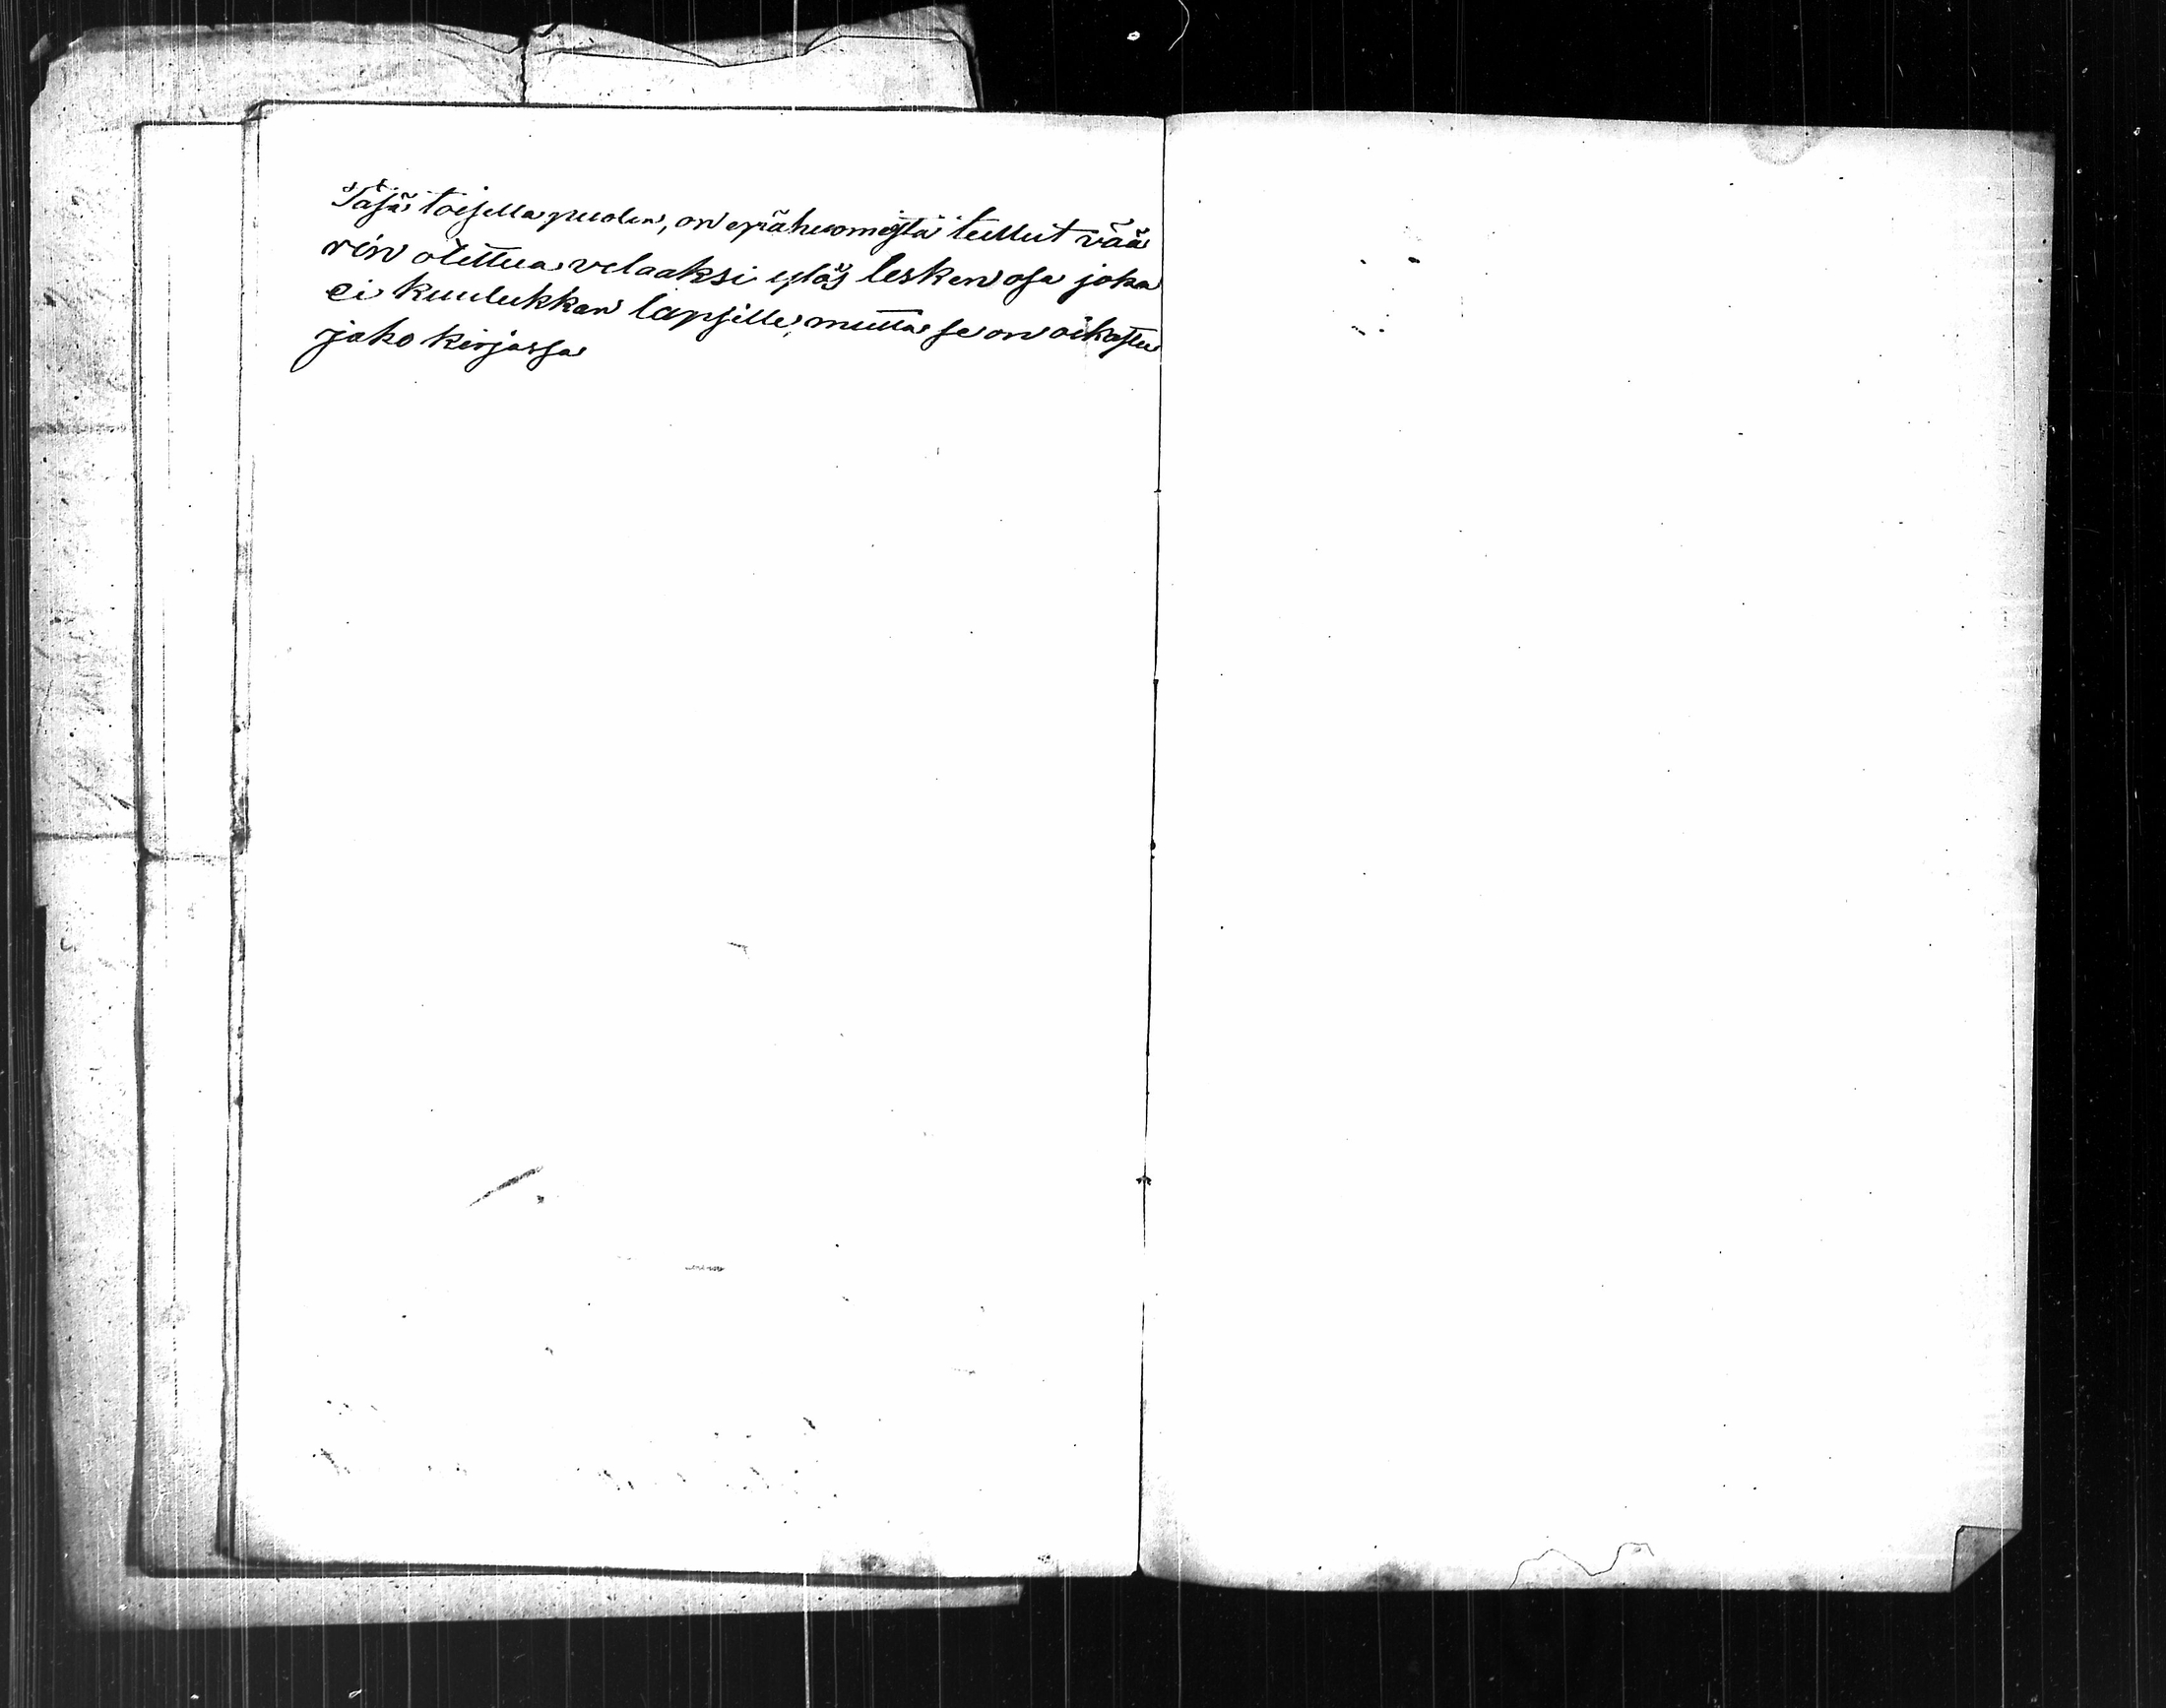 Täsä toisella puolen, on epähuomiosta tullut vää
rin otettua velaaksi ylös lesken osa joka
ei kuulukkan lapsille, mutta se on oikastu
jako kirjassa